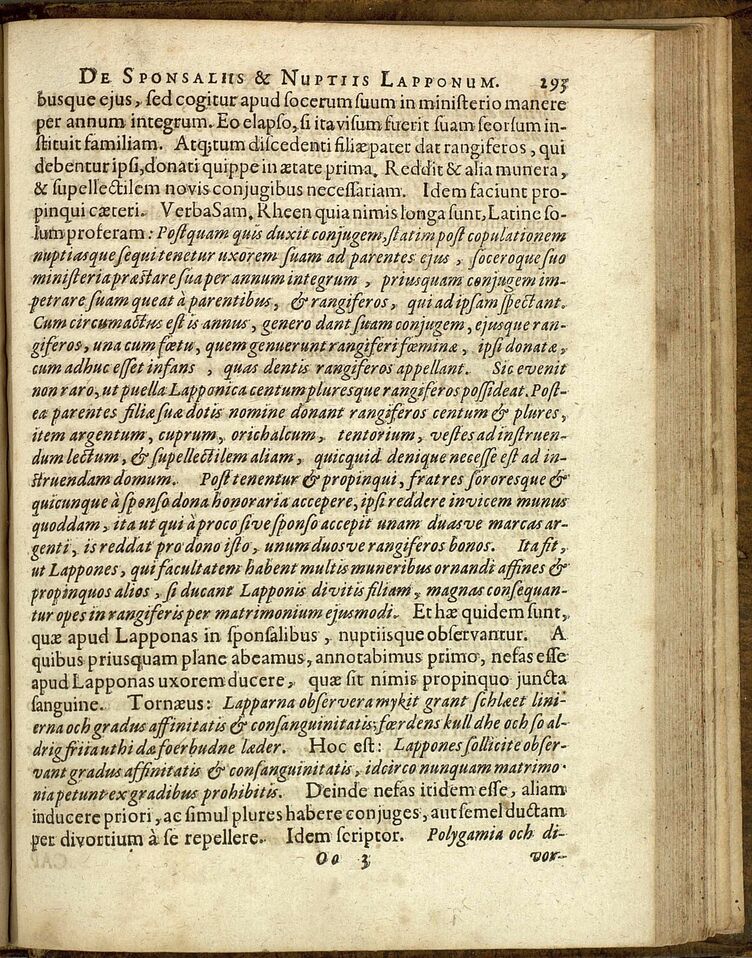 DE SPONSALIIS & NUPTIIS LAPPONUM. 293
busque ejus, ſed cogitur apud ſocerum ſuum in miniſterio manere
per annum integrum. Eo elapſo, ſi ita viſum fuerit ſuam ſeorſum in-
ſtituit familiam. Atq; tum diſcedenti filiæ pater dat rangiferos, qui
debentur ipſi, donati quippe in ætate prima. Reddit & alia munera,
& ſupellectilem novis conjugibus neceſſariam. Idem faciunt pro-
pinqui cæteri. Verba Sam. Rheen quia nimis longa ſunt, Latine ſo-
lum proferam: Poſtquam quis duxit conjugem, ſtatim poſt copulationem
nuptiasque ſequi tenetur uxorem ſuam ad parentes ejus, ſoceroque ſuo
miniſteria præſtare ſua per annum integrum, priusquam conjugem im-
petrare ſuam queat à parentibus, & rangiferos, qui ad ipſam ſpectant.
Cum circumactus eſt is annus, genero dant ſuam conjugem, ejusque ran-
giferos, una cum fœtu, quem genuerunt rangiferi fœminæ, ipſi donatæ,
cum adhuc eſſet infans, quas dentis rangiferos appellant. Sic evenit
non raro, ut puella Lapponica centum pluresque rangiferos poſſideat. Poſt-
ea parentes filiæ ſuæ dotis nomine donant rangiferos centum & plures,
item argentum, cuprum, orichalcum, tentorium, veſtes ad inſtruen-
dum lectum, & ſupellectilem aliam, quicquid denique neceſſe eſt ad in-
ſtruendam domum. Poſt tenentur & propinqui, fratres ſororesque &
quicunque à ſponſo dona honoraria accepere, ipſi reddere invicem munus
quoddam, ita ut qui à proco ſive ſponſo accepit unam duasve marcas ar-
genti, is reddat pro dono iſto, unum duosve rangiferos bonos. Ita fit,
ut Lappones, qui facultatem habent multis muneribus ornandi affines &
propinquos alios, ſi ducant Lapponis divitis filiam, magnas conſequan-
tur opes in rangiferis per matrimonium ejusmodi. Et hæ quidem ſunt,
quæ apud Lapponas in ſponſalibus, nuptiisque obſervantur. A
quibus priusquam plane abeamus, annotabimus primo, nefas eſſe
apud Lapponas uxorem ducere, quæ ſit nimis propinquo juncta
ſanguine. Tornæus: Lapparna obſervera mykit grant ſchlæet lini-
erna och gradus affinitatis & conſanguinitatis, fœrdens kull dhe och ſo al-
drig friia uthi dæ foerbudne læder. Hoc eſt: Lappones ſollicite obſer-
vant gradus affinitatis & conſanguinitatis, idcirco nunquam matrimo-
nia petunt ex gradibus prohibitis. Deinde nefas itidem eſſe, aliam
inducere priori, ac ſimul plures habere conjuges, aut ſemel ductam
per divortium à ſe repellere. Idem ſcriptor. Polygamia och di-
Oo 3 vor-